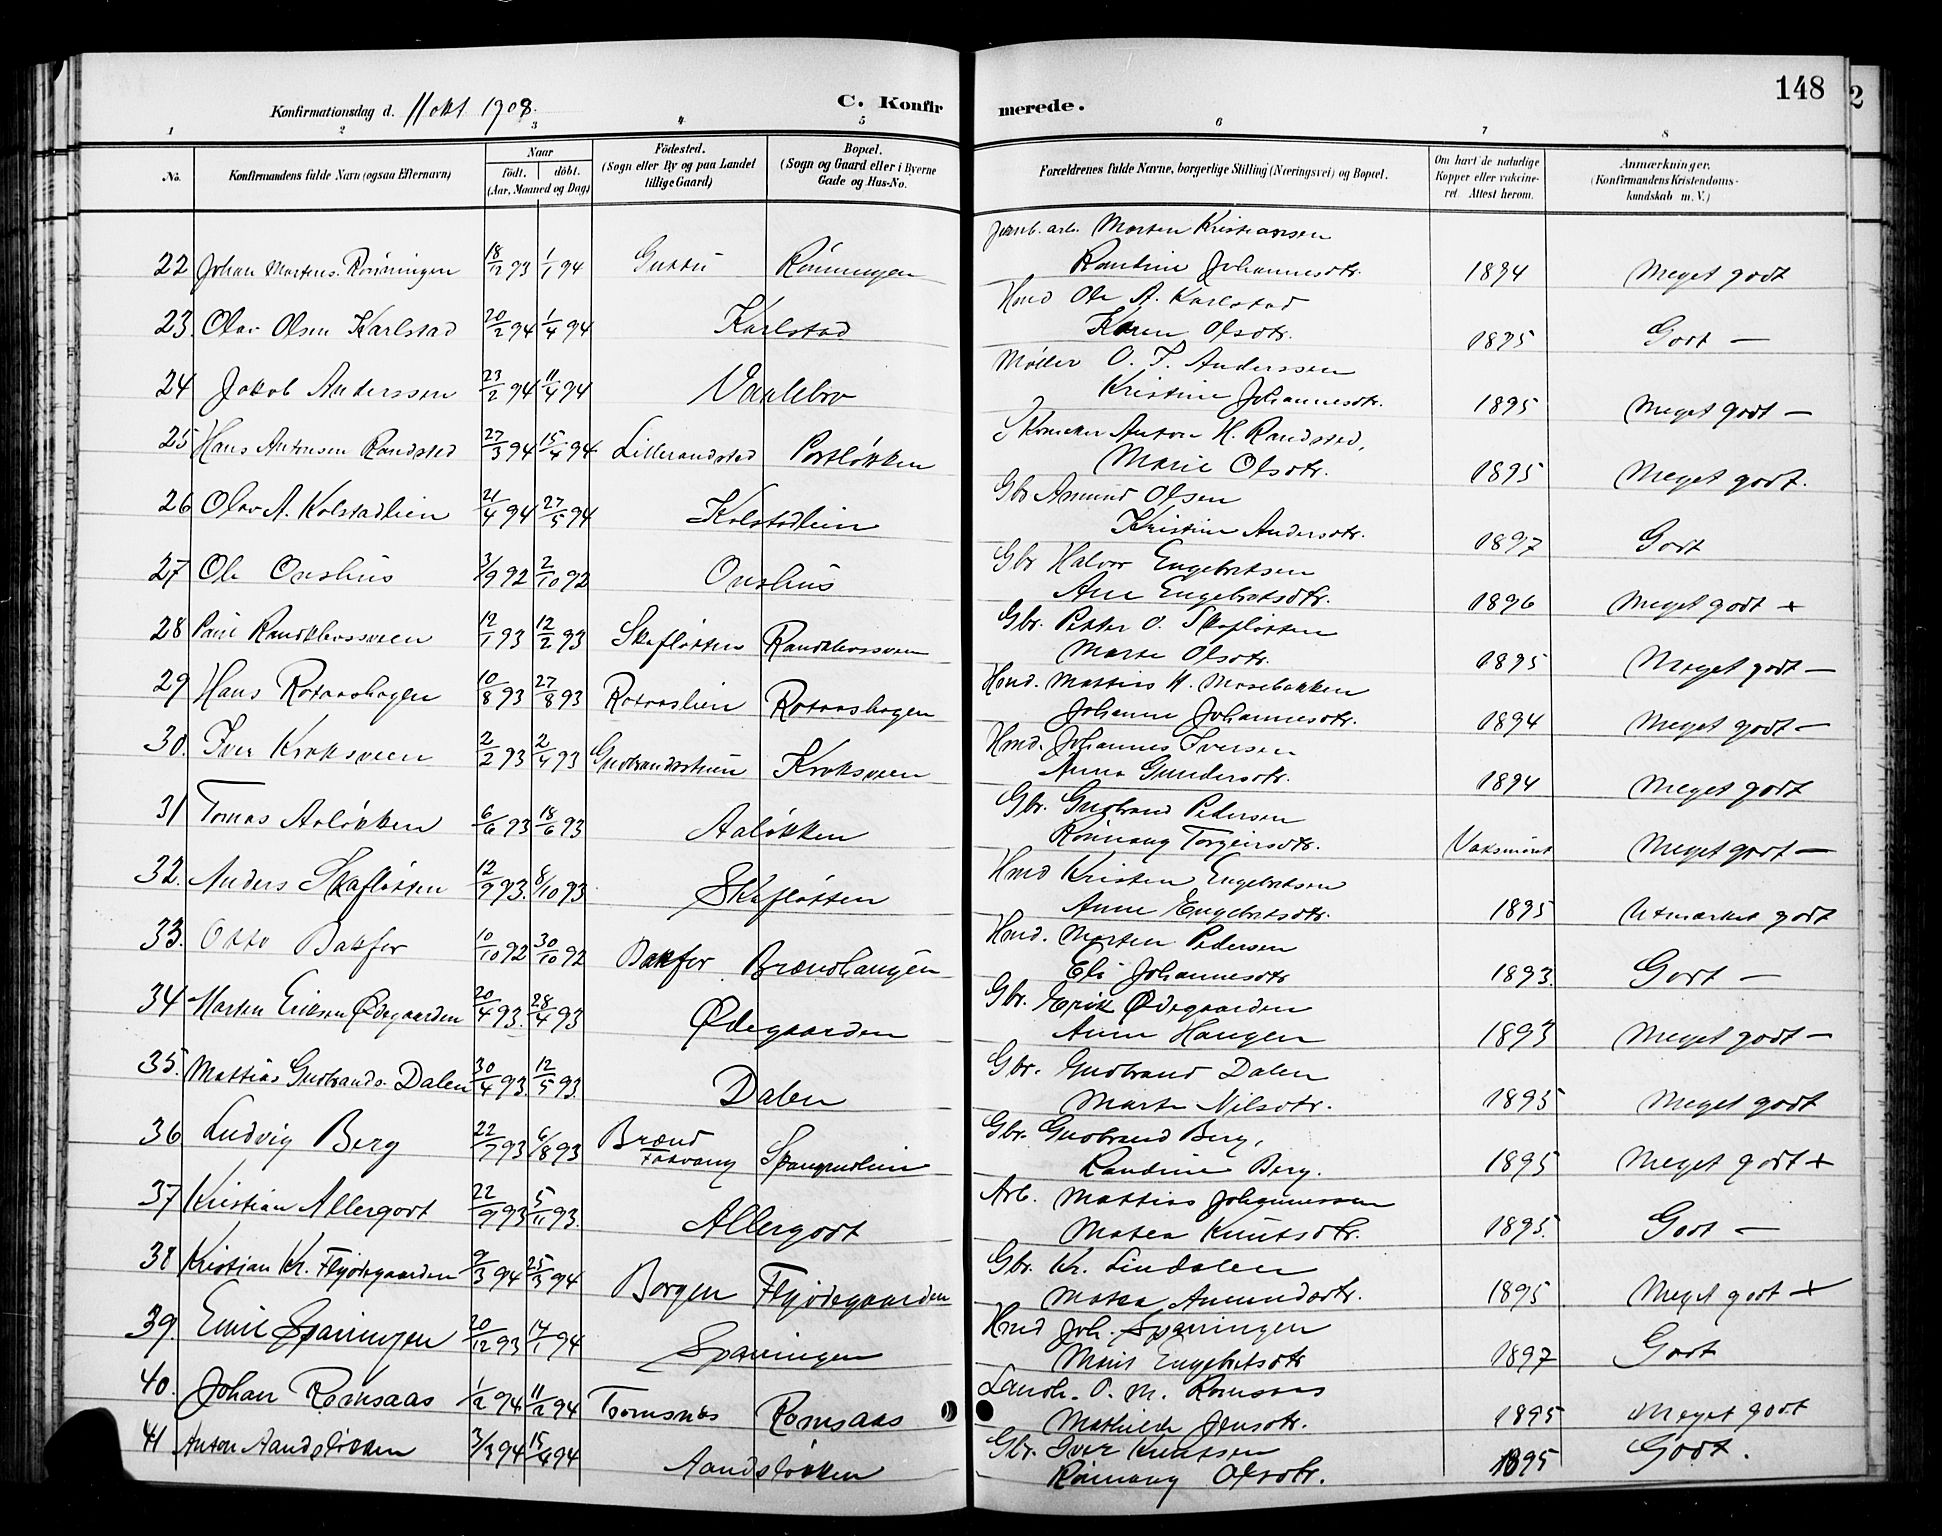 148
2
Konfirmationsdag d. 11 okt 1908.
C. Konfirmerede.
1 2 3 4 5 6 7 8
No.
Konfirmandens fulde Navn (ogsaa Efternavn)
Naar
født. døbt.
(Aar, Maaned og Dag)
Fødested.
(Sogn eller By og paa Landet
tillige Gaard)
Bopæl.
(Sogn og Gaard eller i Byerne
Gade og Hus-No.
Forældrenes fulde Navne, borgerlige Stilling (Næringsvei) og Bopæl.
Om havt de naturlige
Kopper eller vakcine-
ret Attest herom.
Anmærkninger.
(Konfirmandens Kristendoms-
kundskab m. V.)
Jernb. arb. Morten Kristiansen
22 Johan Martens. Rønningen 18/12 93 1/1 94 Rønningen Randine Johannesdtr. 1894 Meget godt
Hmd Ole A. Karlstad
23. Olav Olsen Karlstad 20/2 94 1/4 94 Karlstad Karen Olsdtr. 1895 Godt —
Møller O. T. Anderssen
24 Jakob Anderssen 23/2 94 11/4 94 Vaalebro Kristine Johannesdtr. 1895 Meget godt —
Skomaker Anton H. Randsted,
25 Hans Antonsen Randsted 27/3 94 15/4 94 Lillerandsted Portløkken Marie Olsdtr. 1895 Meget godt.
Gbr Amund Olsen
26 Olav A. Kolstadlien 21/4 94 27/5 94 Kolstadlien Kristine Andersdtr. 1897 Godt
Gbr Halvor Engebretsen
27 Ole Onshus 3/9 92 2/10 92 Onshus Ane Engebretsdtr. 1896 Meget godt +
Gbr. Petter O. Skafløtten
28 Paul Randklevsveen 12/1 93 12/2 93 Skafløtten Randklevsveen Marte Olsdtr. 1895 Meget godt —
Hmd. Mattis H. Mosebakken
29 Hans Rotaashagen 10/8 93 27/8 93 Rotaaslien Rotaashagen Johanne Johannesdtr. 1894 Meget godt —
Hmd. Johannes Iversen
30. Iver Kroksveen 2/2 93 2/4 93 Kroksveen Anna Gundersdtr. 1894 Meget godt
Gbr. Gudbrand Pedersen
31 Tomas Aaløkken 6/6 93 18/6 93 Aaløkken Rønnaug Torgeirsdtr. Vaksineret Meget godt —
Hmd Kristen Engebretsen
32. Anders Skafløtten 12/9 93. 8/10 93 Skafløtten Anne Engebretsdtr. 1895 Utmærket godt
Hmd. Morten Pedersen
33. Otto Bakfor 10/10 92 30/10 92 Bakfor Brændhaugen Eli Johannesdtr 1893. Godt —
Gbr. Erik Ødegaarden
34 Marten Eriksen Ødegaarden 20/4 93. 28/4 93 Ødegaarden Anne Haugen 1893 Meget godt —
Gbr. Gudbrand Dalen
35. Mattias Gudbrands. Dalen 30/4 93. 12/5 93. Dalen Marte Nilsdtr. 1895 Meget godt
Gbr. Gudbrand Berg,
36 Ludvig Berg 22/7 93 6/8 93 Brænd Faavang Spangrudlien Randine Berg. 1895 Meget godt +
Arb. Mattias Johannessen
37 Kristian Allergodt 22/9 93 5/11 93. Allergodt Matea Knutsdtr. 1895. Godt —
Gbr. Kr. Lindalen
38 Kristian Kr. Flyødegaarden 9/3 94 25/3 94 Borgen Flyødegaarden Matea Amundsdtr. 1895 Meget godt +
Hmd Joh. Sparringen
39 Emil Sparringen 20/12 93 14/1 94 Sparringen Marit Engebretsdtr 1897 Godt
Landh. O. M. Romsaas
40. Johan Romsaas 1/2 94 11/2 94 Tromsnæs Romsaas Mathilde Jensdtr. 1895 Meget godt
Gbr. Iver Knutsen
41 Anton Aandsløkken 3/3 94 15/4 94 Aandsløkken Rønnaug Olsdtr. 1895 Godt.